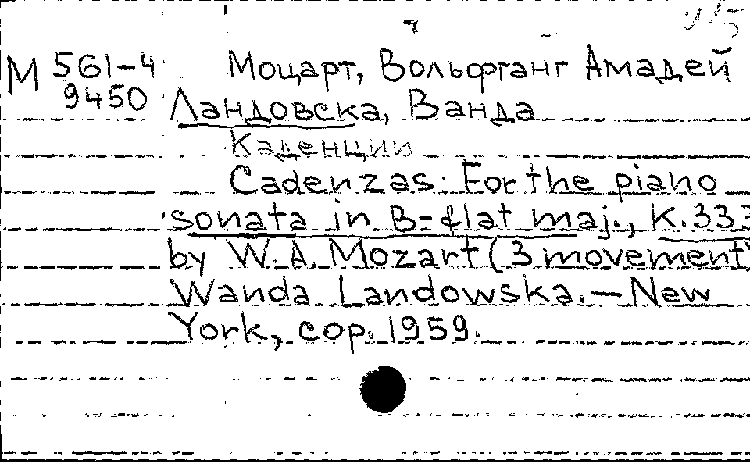 М 561-4
9450
Моцарт, Вольфганг Амадей
Ландовска, Ванда
Каденции
Cadenzas: For the piano
sonata in B-flat maj., K.333
by W. A. Mozart (3 movement)
Wanda Landowska. — New
York, cop. 1959.